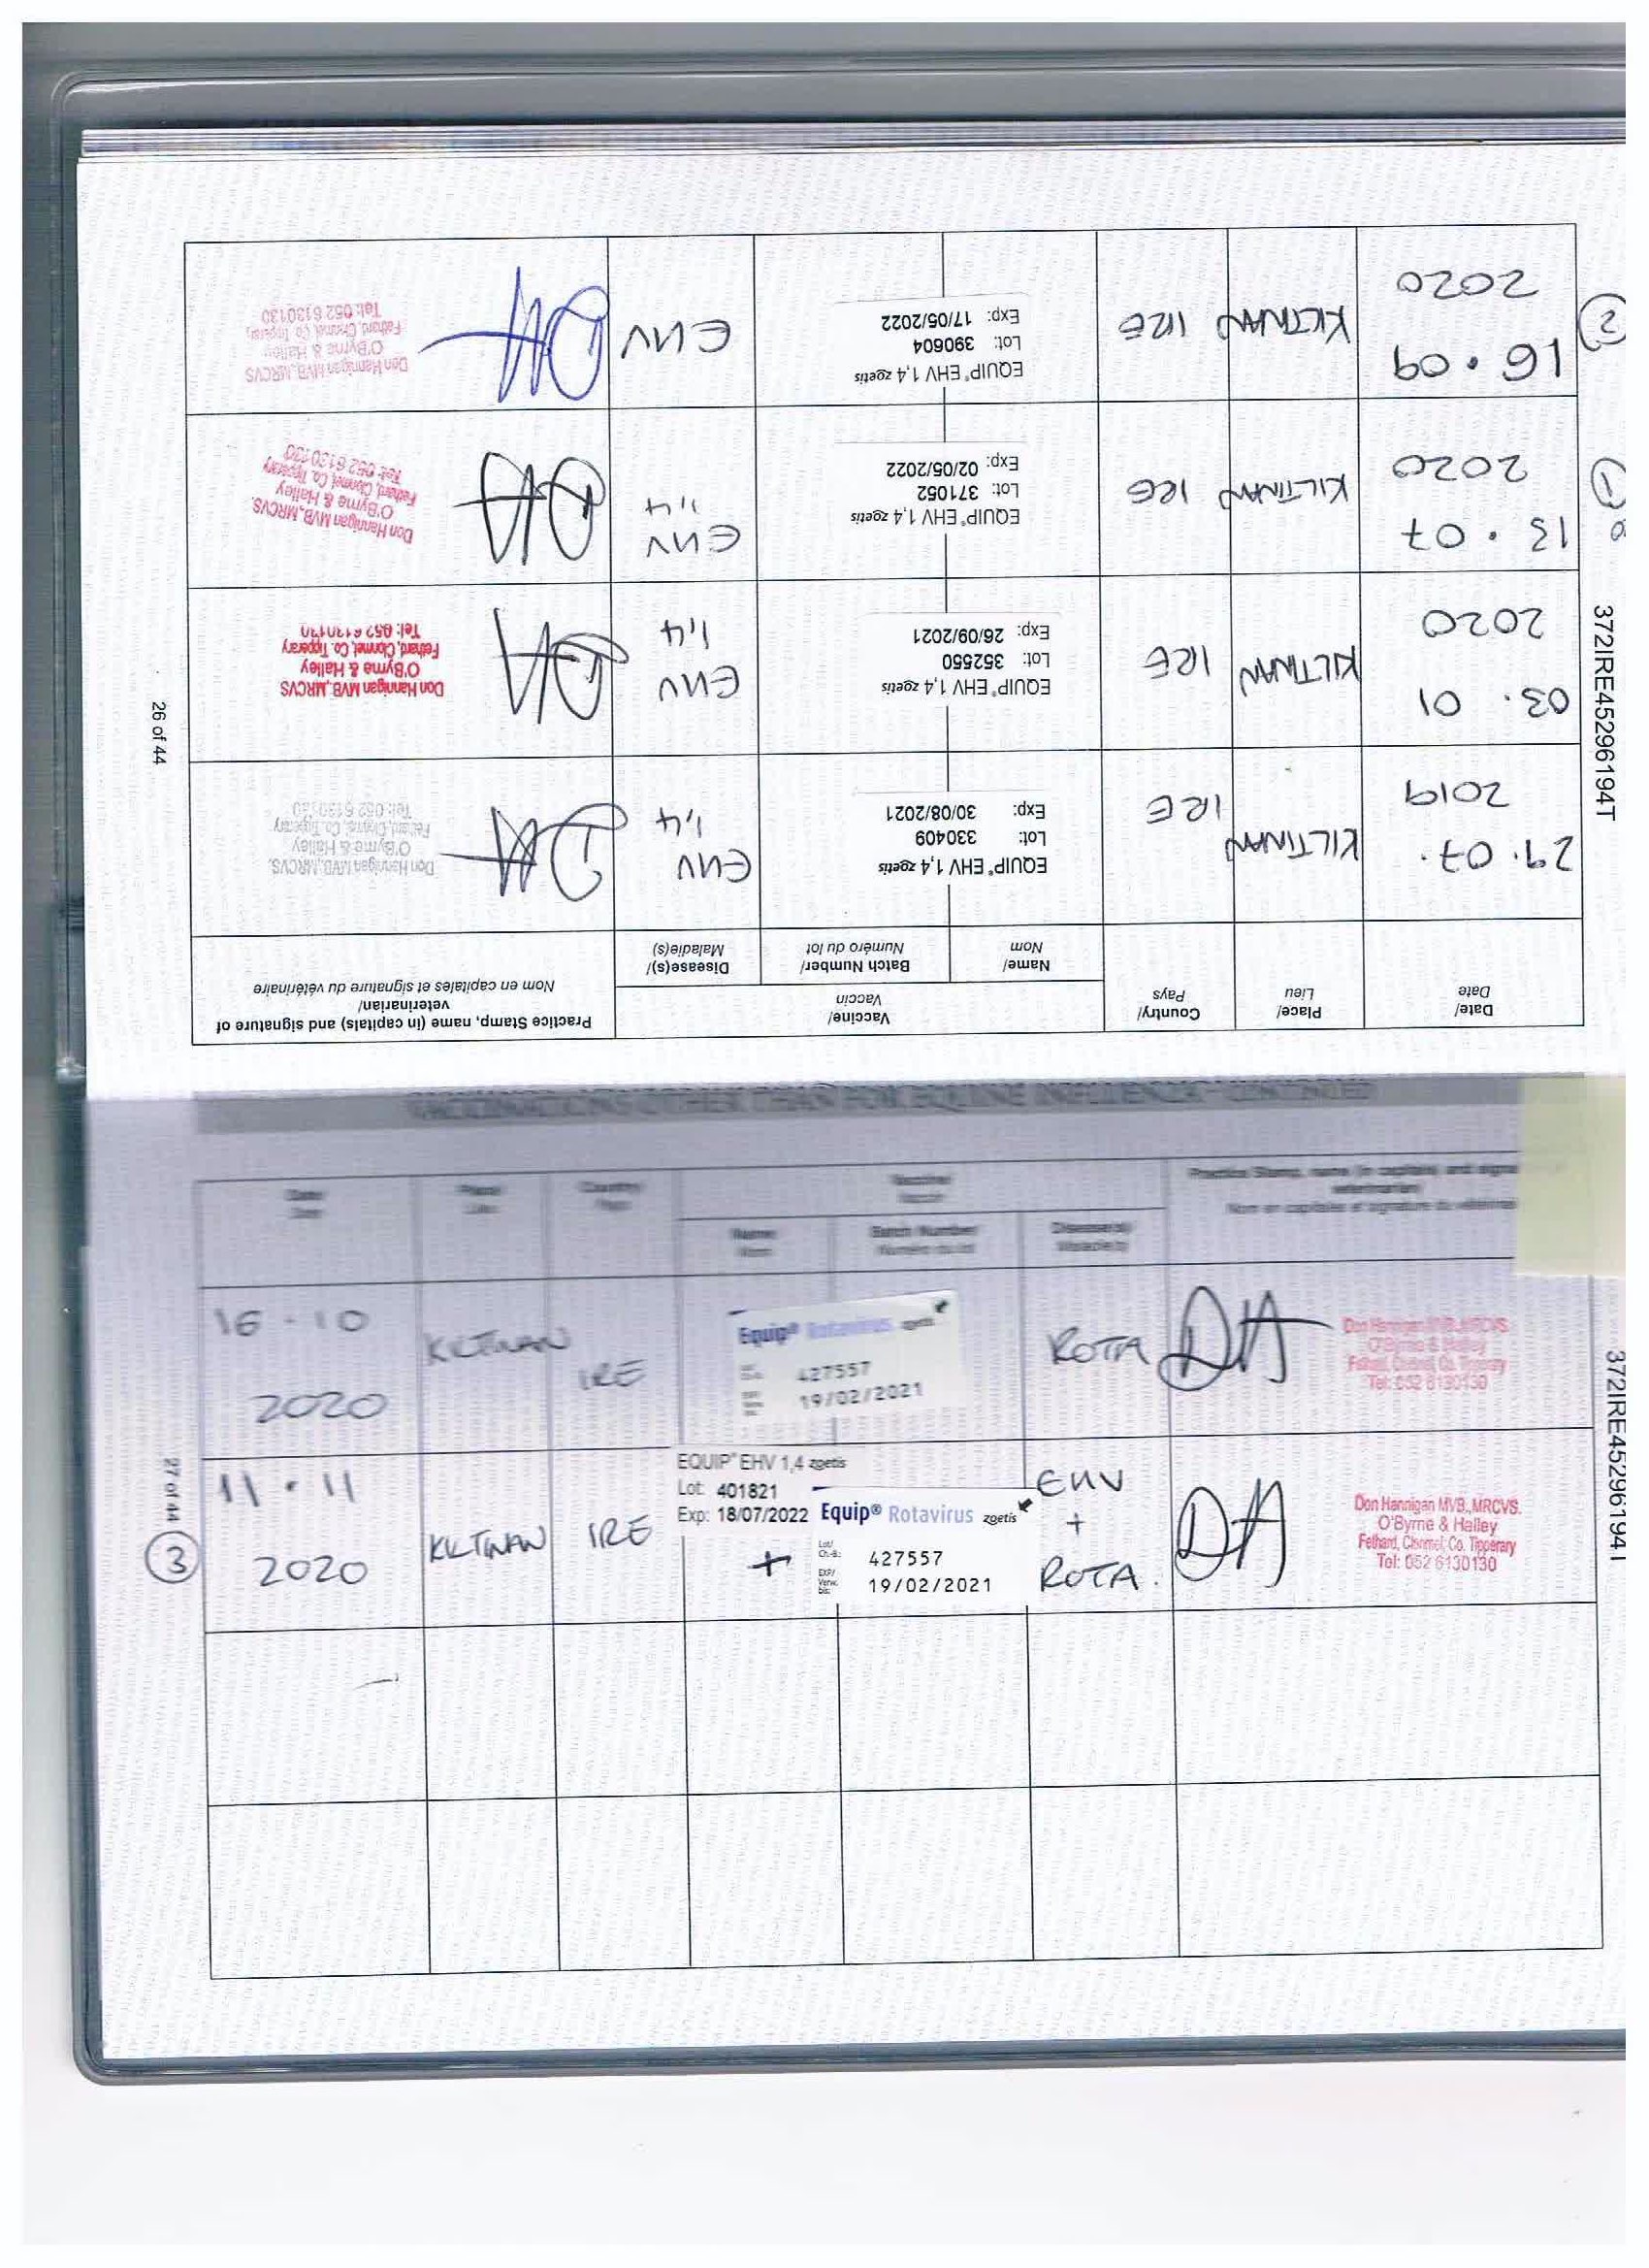 Date/
Date
Place/
Lieu
Country/
Pays
Vaccine/
Vaccin
Name/
Nom
Batch Number/
Numéro du lot
Disease(s)/
Maladie(s)
Practice Stamp, name (in capitals) and signature of
veterinarian/
Nom en capitales et signature du vétérinaire
29.07.
2019
KILTINAN
IRE
EQUIP® EHV 1,4 zoetis
Lot: 330409
Exp: 30/08/2021
EHV
1,4
Don Hannigan MVB.,MRCVS.
O'Byrne & Halley
Fethard, Clonmel, Co. Tipperary
Tel: 052 6130130
03.01
2020
KILTINAN
IRE
EQUIP® EHV 1,4 zoetis
Lot: 352550
Exp: 26/09/2021
EHV
1,4
Don Hannigan MVB.,MRCVS
O'Byrne & Halley
Fethard, Clonmel, Co. Tipperary
Tel: 052 6130130
①
13.07
2020
KILTINAN
IRE
EQUIP® EHV 1,4 zoetis
Lot: 371052
Exp: 02/05/2022
EHV
1,4
Don Hannigan MVB.,MRCVS.
O'Byrne & Halley
Fethard, Clonmel, Co. Tipperary
Tel: 052 6130130
②
16.09
2020
KILTINAN
IRE
EQUIP® EHV 1,4 zoetis
Lot: 390604
Exp: 17/05/2022
EHV
Don Hannigan MVB.,MRCVS
O'Byrne & Halley
Fethard, Clonmel, Co. Tipperary
Tel: 052 6130130
26 of 44
372IRE45296194T
VACCINATIONS OTHER THAN FOR EQUINE INFLUENZA - CONTINUED
Date
Place
Country
Vaccine/
Name
Batch Number
Numéro du lot
Disease(s)
Maladie(s)
Practice Stamp, name (in capitals) and
veterinarian
Nom en capitales et signature du
16.10
2020
KILTINAN
IRE
Equip® Rotavirus zoetis
427557
19/02/2021
ROTA
Don Hannigan MVB.,MRCVS.
O'Byrne & Halley
Fethard, Clonmel, Co. Tipperary
Tel: 052 6130130
③
11.11
2020
KILTINAN
IRE
EQUIP® EHV 1,4 zoetis
Lot: 401821
Exp: 18/07/2022
+
Equip® Rotavirus zoetis
Lot/
Ch.-B.:
427557
EXP/
Verw.
bis:
19/02/2021
EHV
+
ROTA.
Don Hannigan MVB.,MRCVS.
O'Byrne & Halley
Fethard, Clonmel, Co. Tipperary
Tel: 052 6130130
27 of 44
372IRE45296194T